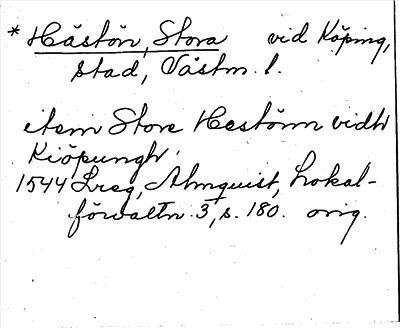 * Hästön, Stora vid Köping,
stad, Västm. l.
item Store Hestönn vidh
Kiöpungh.
1544 Lreg, Almquist, Lokal-
förvaltn. 3, s. 180. orig.